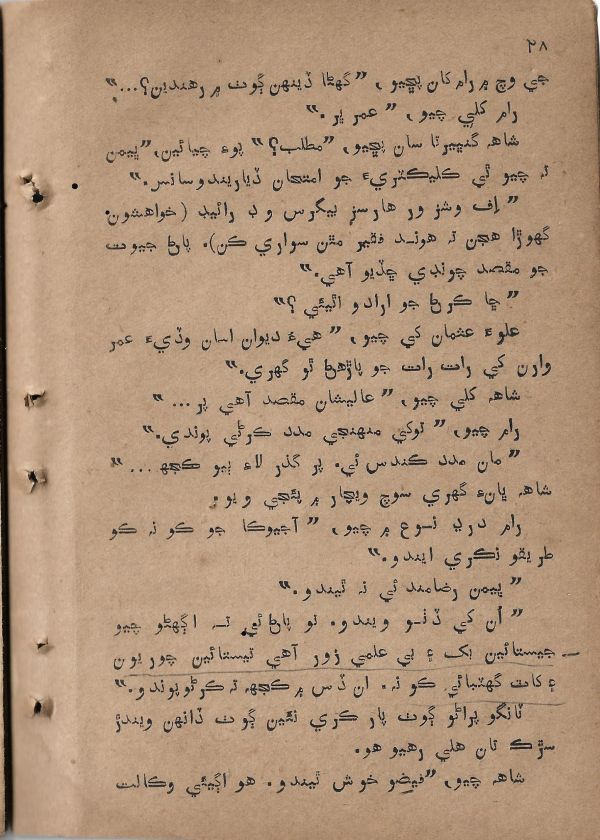 ٢٨
جي وچ ۾ رام کان پڇيو، ”گهڻا ڏينهن ڳوٺ ۾ رهندين؟...“
رام کلي چيو، ”عمر ڀر.“
شاهه گنڀيرتا سان پڇيو، ”مطلب؟“ پوءِ چيائين، ”ڀيمن
ته چيو ٿي ڪليڪٽريءَ جو امتحان ڏياريندوسانس.“
”اِف وشز ور هارسز بيگرس وڊ رائيڊ (خواهشون
گهوڙا هجن ته هوند فقير مٿن سواري ڪن). پاڻ جيوت
جو مقصد چونڊي ڇڏيو آهي.“
”ڇا ڪرڻ جو ارادو اٿيئي؟“
علوءَ عثمان کي چيو، ”هيءُ ديوان اسان وڏيءَ عمر
وارن کي رات رات جو پاڙهڻ ٿو گهري.“
شاهه کلي چيو، ”عاليشان مقصد آهي پر...“
رام چيو، ”توکي منهنجي مدد ڪرڻي پوندي.“
”مان مدد ڪندس ئي. پر گذر لاءِ ٻيو ڪجهه...“
شاهه ڀانءِ گهري سوچ ويچار ۾ پئجي ويو.
رام درڍ نوع ۾ چيو، ”آجيوڪا جو ڪو نه ڪو
طريقو نڪري ايندو.“
”ڀيمن رضامند ئي نه ٿيندو.“
”اُن کي ڏٺو ويندو. تو پاڻ ئي ته اڳهڻو چيو
جيستائين بک ۽ بي علمي زور آهي تيستائين چوريون
۽ کاٽ گهٽبائي ڪو نه. ان ڏس ۾ ڪجهه ته ڪرڻو پوندو.“
ٽانگو پراڻو ڳوٺ پار ڪري نئين ڳوٺ ڏانهن ويندڙ
سڙڪ تان هلي رهيو هو.
شاهه چيو، ”فيضو خوش ٿيندو. هو اڳيئي وڪالت